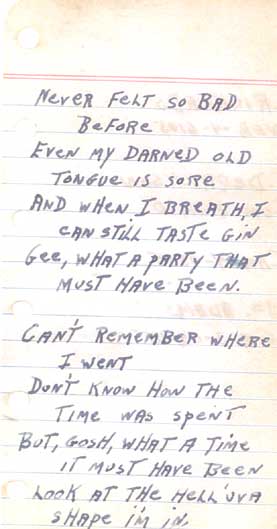 Never Felt so Bad
Before
Even my Darned old
Tongue is sore
And when I Breath, I
can still taste Gin
Gee, what a party that
must have been.
Can't Remember where
I went
Don't know how the
Time was spent
But, gosh, what a time
it must have been
Look at the hell'uva
shape I'm in.